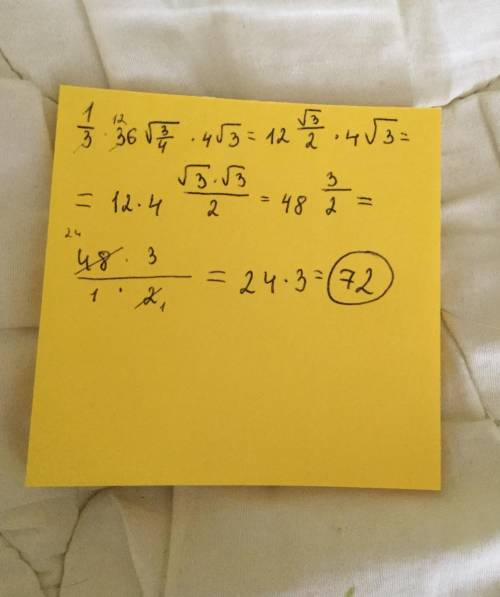 1/3 · 36 12 √3/4 · 4√3 = 12 √3/2 · 4√3 =
= 12·4 √3·√3/2 = 48 3/2 =
24 48 · 3 / 1 · 2 1 = 24·3 = 72